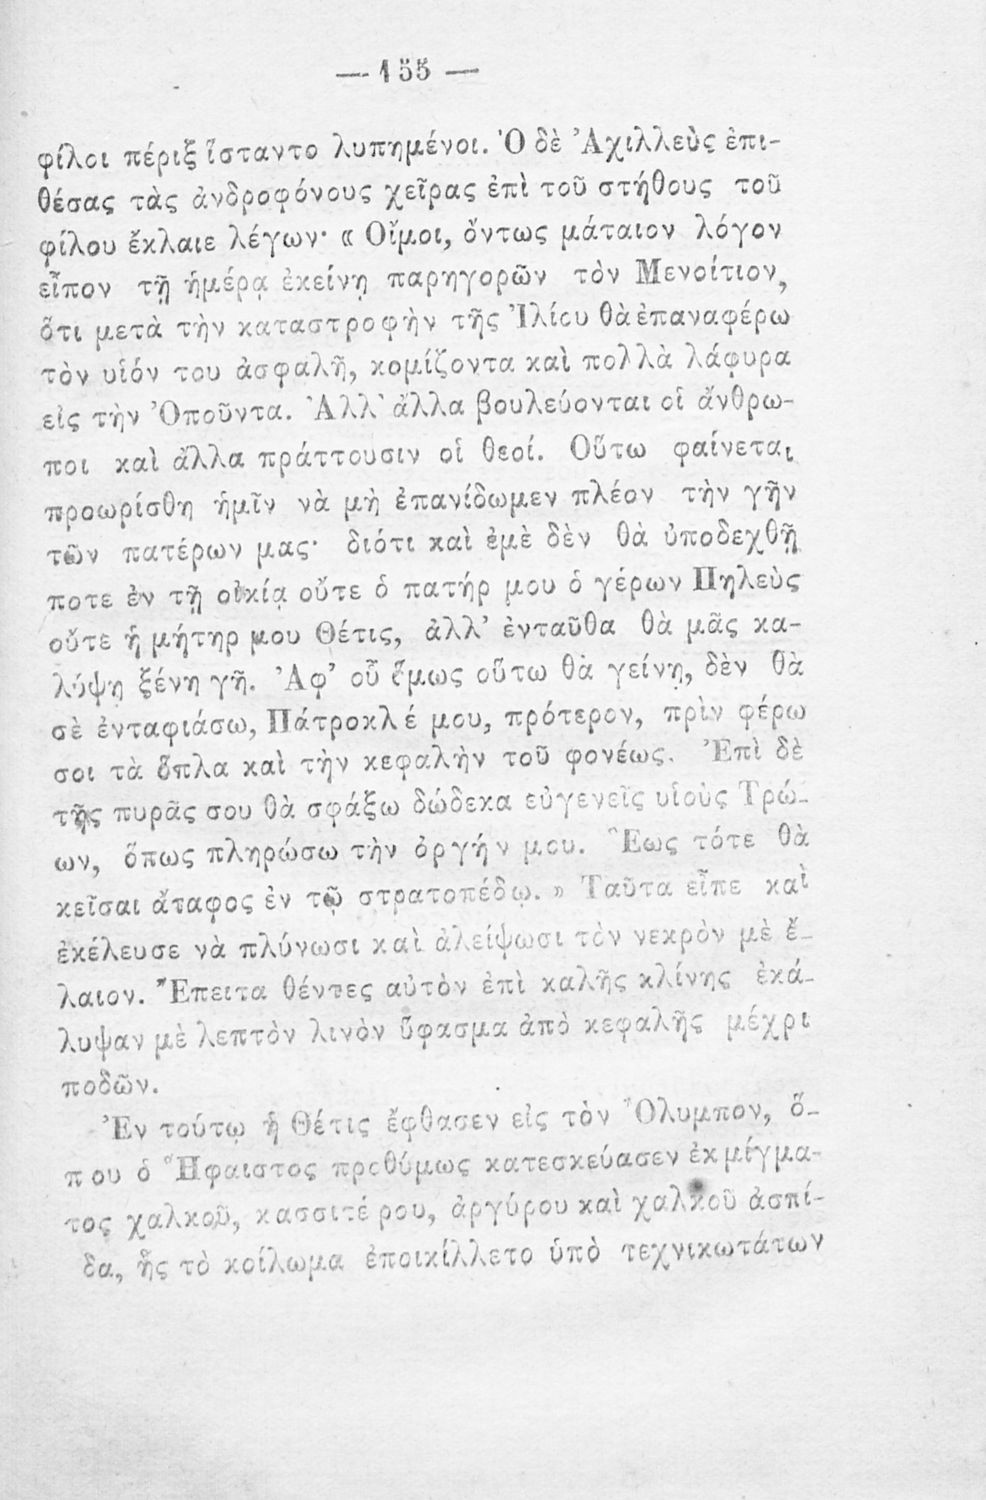 — 155 —
φίλοι πέριξ ἵσταντο λυπημένοι. Ὁ δὲ Ἀχιλλεὺς ἐπι-
θέσας τὰς ἀνδροφόνους χεῖρας ἐπὶ τοῦ στήθους τοῦ
φίλου ἔκλαιε λέγων· « Οἴμοι, ὄντως μάταιον λόγον
εἶπον τῇ ἡμέρᾳ ἐκείνῃ παρηγορῶν τὸν Μενοίτιον,
ὅτι μετὰ τὴν καταστροφὴν τῆς Ἰλίου θὰ ἐπαναφέρω
τὸν υἱόν του ἀσφαλῆ, κομίζοντα καὶ πολλὰ λάφυρα
εἰς τὴν Ὀποῦντα. Ἀλλ' ἄλλα βουλεύονται οἱ ἄνθρω-
ποι καὶ ἄλλα πράττουσιν οἱ θεοί. Οὕτω φαίνεται
προωρίσθη ἡμῖν νὰ μὴ ἐπανίδωμεν πλέον τὴν γῆν
τῶν πατέρων μας· διότι καὶ ἐμὲ δὲν θὰ ὑποδεχθῇ
ποτε ἐν τῇ οἰκίᾳ οὔτε ὁ πατήρ μου ὁ γέρων Πηλεὺς
οὔτε ἡ μήτηρ μου Θέτις, ἀλλ' ἐνταῦθα θὰ μᾶς κα-
λύψῃ ξένη γῆ. Ἀφ' οὗ ὅμως οὕτω θὰ γείνῃ, δὲν θὰ
σὲ ἐνταφιάσω, Πάτροκλέ μου, πρότερον, πρὶν φέρω
σοι τὰ ὅπλα καὶ τὴν κεφαλὴν τοῦ φονέως. Ἐπὶ δὲ
τῆς πυρᾶς σου θὰ σφάξω δώδεκα εὐγενεῖς υἱοὺς Τρώ-
ων, ὅπως πληρώσω τὴν ὀργήν μου. Ἕως τότε θὰ
κεῖσαι ἄταφος ἐν τῷ στρατοπέδῳ. » Ταῦτα εἶπε καὶ
ἐκέλευσε νὰ πλύνωσι καὶ ἀλείψωσι τὸν νεκρὸν μὲ ἔ-
λαιον. Ἔπειτα θέντες αὐτὸν ἐπὶ καλῆς κλίνης ἐκά-
λυψαν μὲ λεπτὸν λινὸν ὕφασμα ἀπὸ κεφαλῆς μέχρι
ποδῶν.
Ἐν τούτῳ ἡ Θέτις ἔφθασεν εἰς τὸν Ὄλυμπον, ὅ-
που ὁ Ἥφαιστος προθύμως κατεσκεύασεν ἐκ μίγμα-
τος χαλκοῦ, κασσιτέρου, ἀργύρου καὶ χαλκοῦ ἀσπί-
δα, ἧς τὸ κοίλωμα ἐποικίλλετο ὑπὸ τεχνικωτάτων